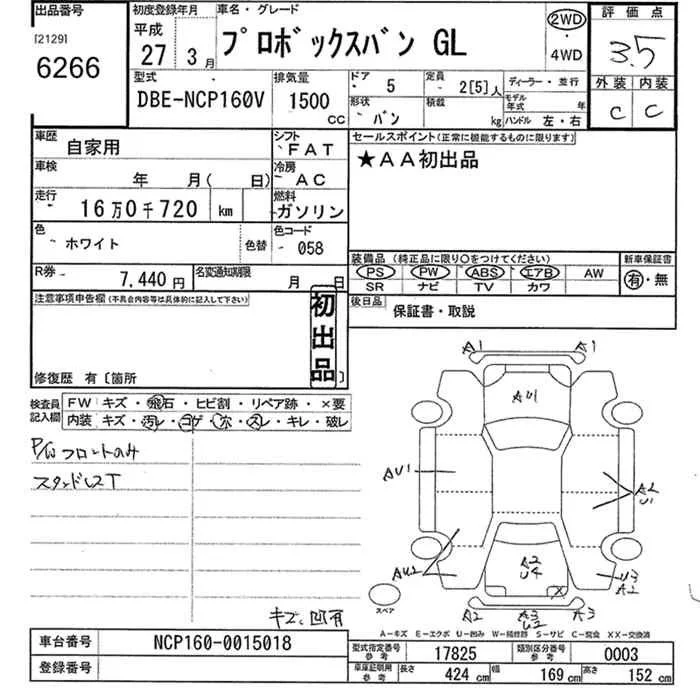 出品番号 初度登録年月 車名・グレード 評価点
[2129] 平成 2WD
6266 27 3月 プロボックスバン GL ・ 3.5
4WD
外装 内装
C C
型式 排気量 ドア 定員 ディーラー・並行
DBE-NCP160V 1500 CC 5 2[5]人 モデル年式 年
形状 積載
バン kg ハンドル 左・右
車歴 シフト セールスポイント(正常に機能するものに限ります)
自家用 FAT ★AA初出品
車検 冷房
年 月( 日) AC
走行 燃料
16万0千720 km ガソリン
色 色コード
ホワイト 色替 058
装備品(純正品に限り〇をつけてください) 新車保証書
PS PW ABS エアB AW 有・無
SR ナビ TV カワ
R券 名変通知期限
7,440円 月 日
注意事項申告欄(不具合内容等は具体的に記入して下さい) 後日品
初出品 保証書・取説
修復歴 有〔箇所 〕
検査員記入欄 FW キズ・飛石・ヒビ割・リペア跡・×要
内装 キズ・汚レ・コゲ・穴・スレ・キレ・破レ
P/W フロントのみ
スタッドレスT
キズ、凹有
A1 A1
AU1
AU1
A2
U1
AU2
A2
U4
X
U3
A2
スペア
A2 A3
U2 A3
A-キズ E-エクボ U-凹み W-補修跡 S-サビ C-腐食 XX-交換済
車台番号 NCP160-0015018
登録番号
型式指定番号 参考 17825 類別区分番号 参考 0003
車庫証明用 参考 長さ 424 cm 幅 169 cm 高さ 152 cm